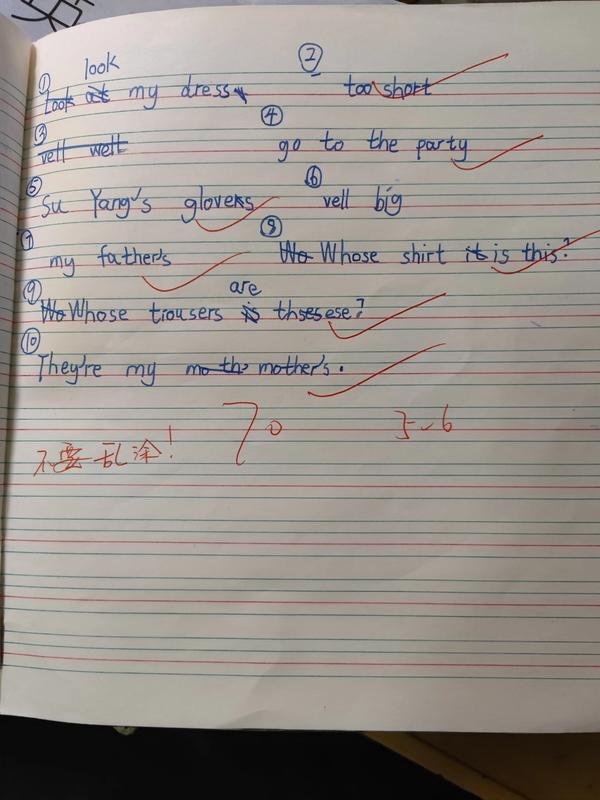 look
① Look at my dress ② too short
③ vell well ④ go to the party
⑤ Su Yang's gloves ⑥ vell big
⑦ my father's ⑧ Wo Whose shirt it is this?
are
⑨ Wo Whose trousers is thsesese?
⑩ They're my mo th mother's.
不要乱涂! 70 5.6